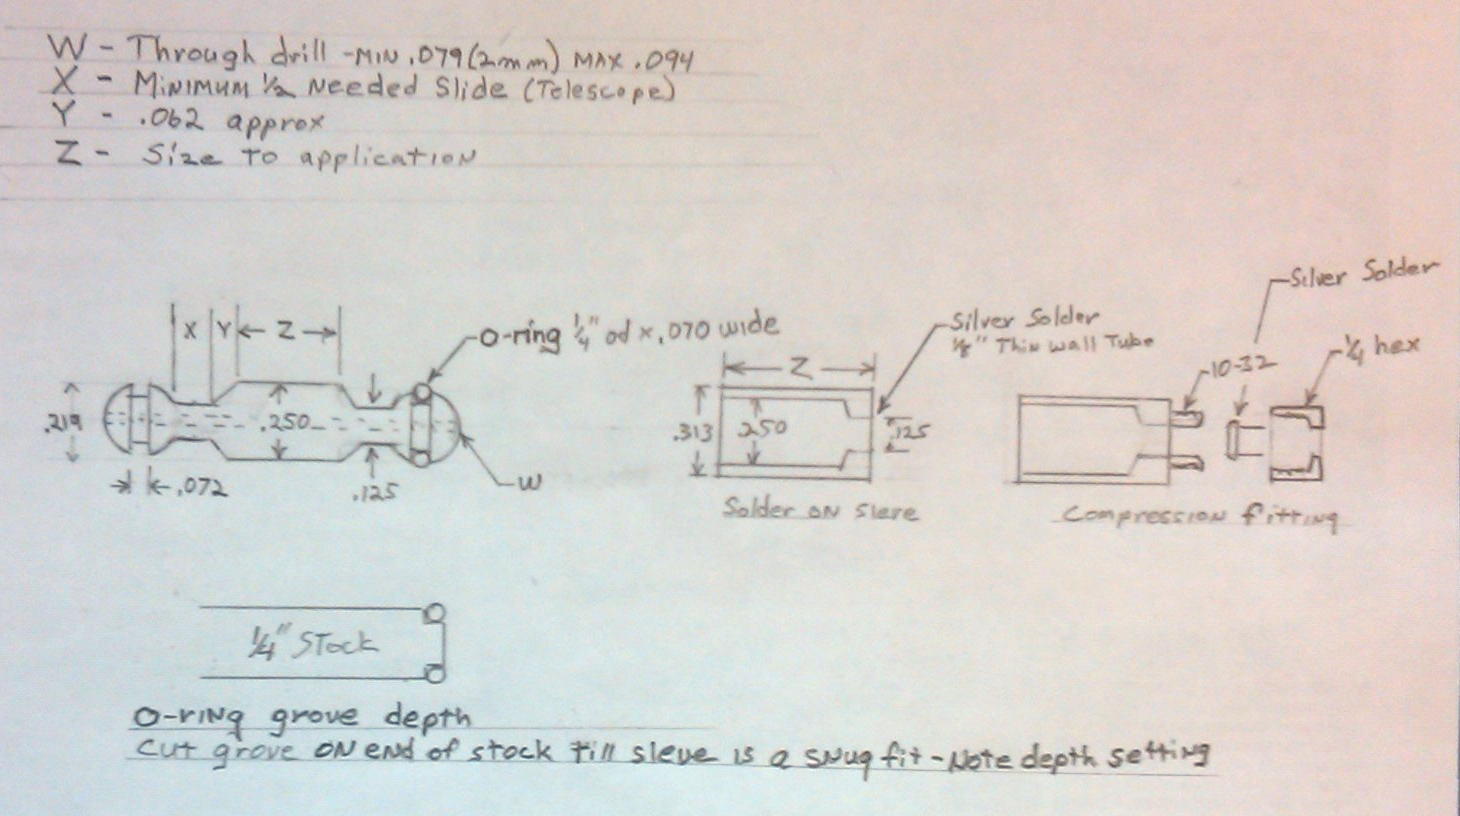 W - Through drill - MIN .079 (2mm) MAX .094
X - MINIMUM 1/2 Needed Slide (Telescope)
Y - .062 approx
Z - Size To application
X Y Z
O-ring 1/4" od x .070 wide
.219
.250
.072
.125
W
Z
.313
.250
.125
Silver Solder
1/8" Thin wall Tube
Solder on Sleve
Silver Solder
10-32
1/4 hex
Compression fitting
1/4" Stock
O-ring grove depth
Cut grove on end of stock till sleve is a snug fit - Note depth setting